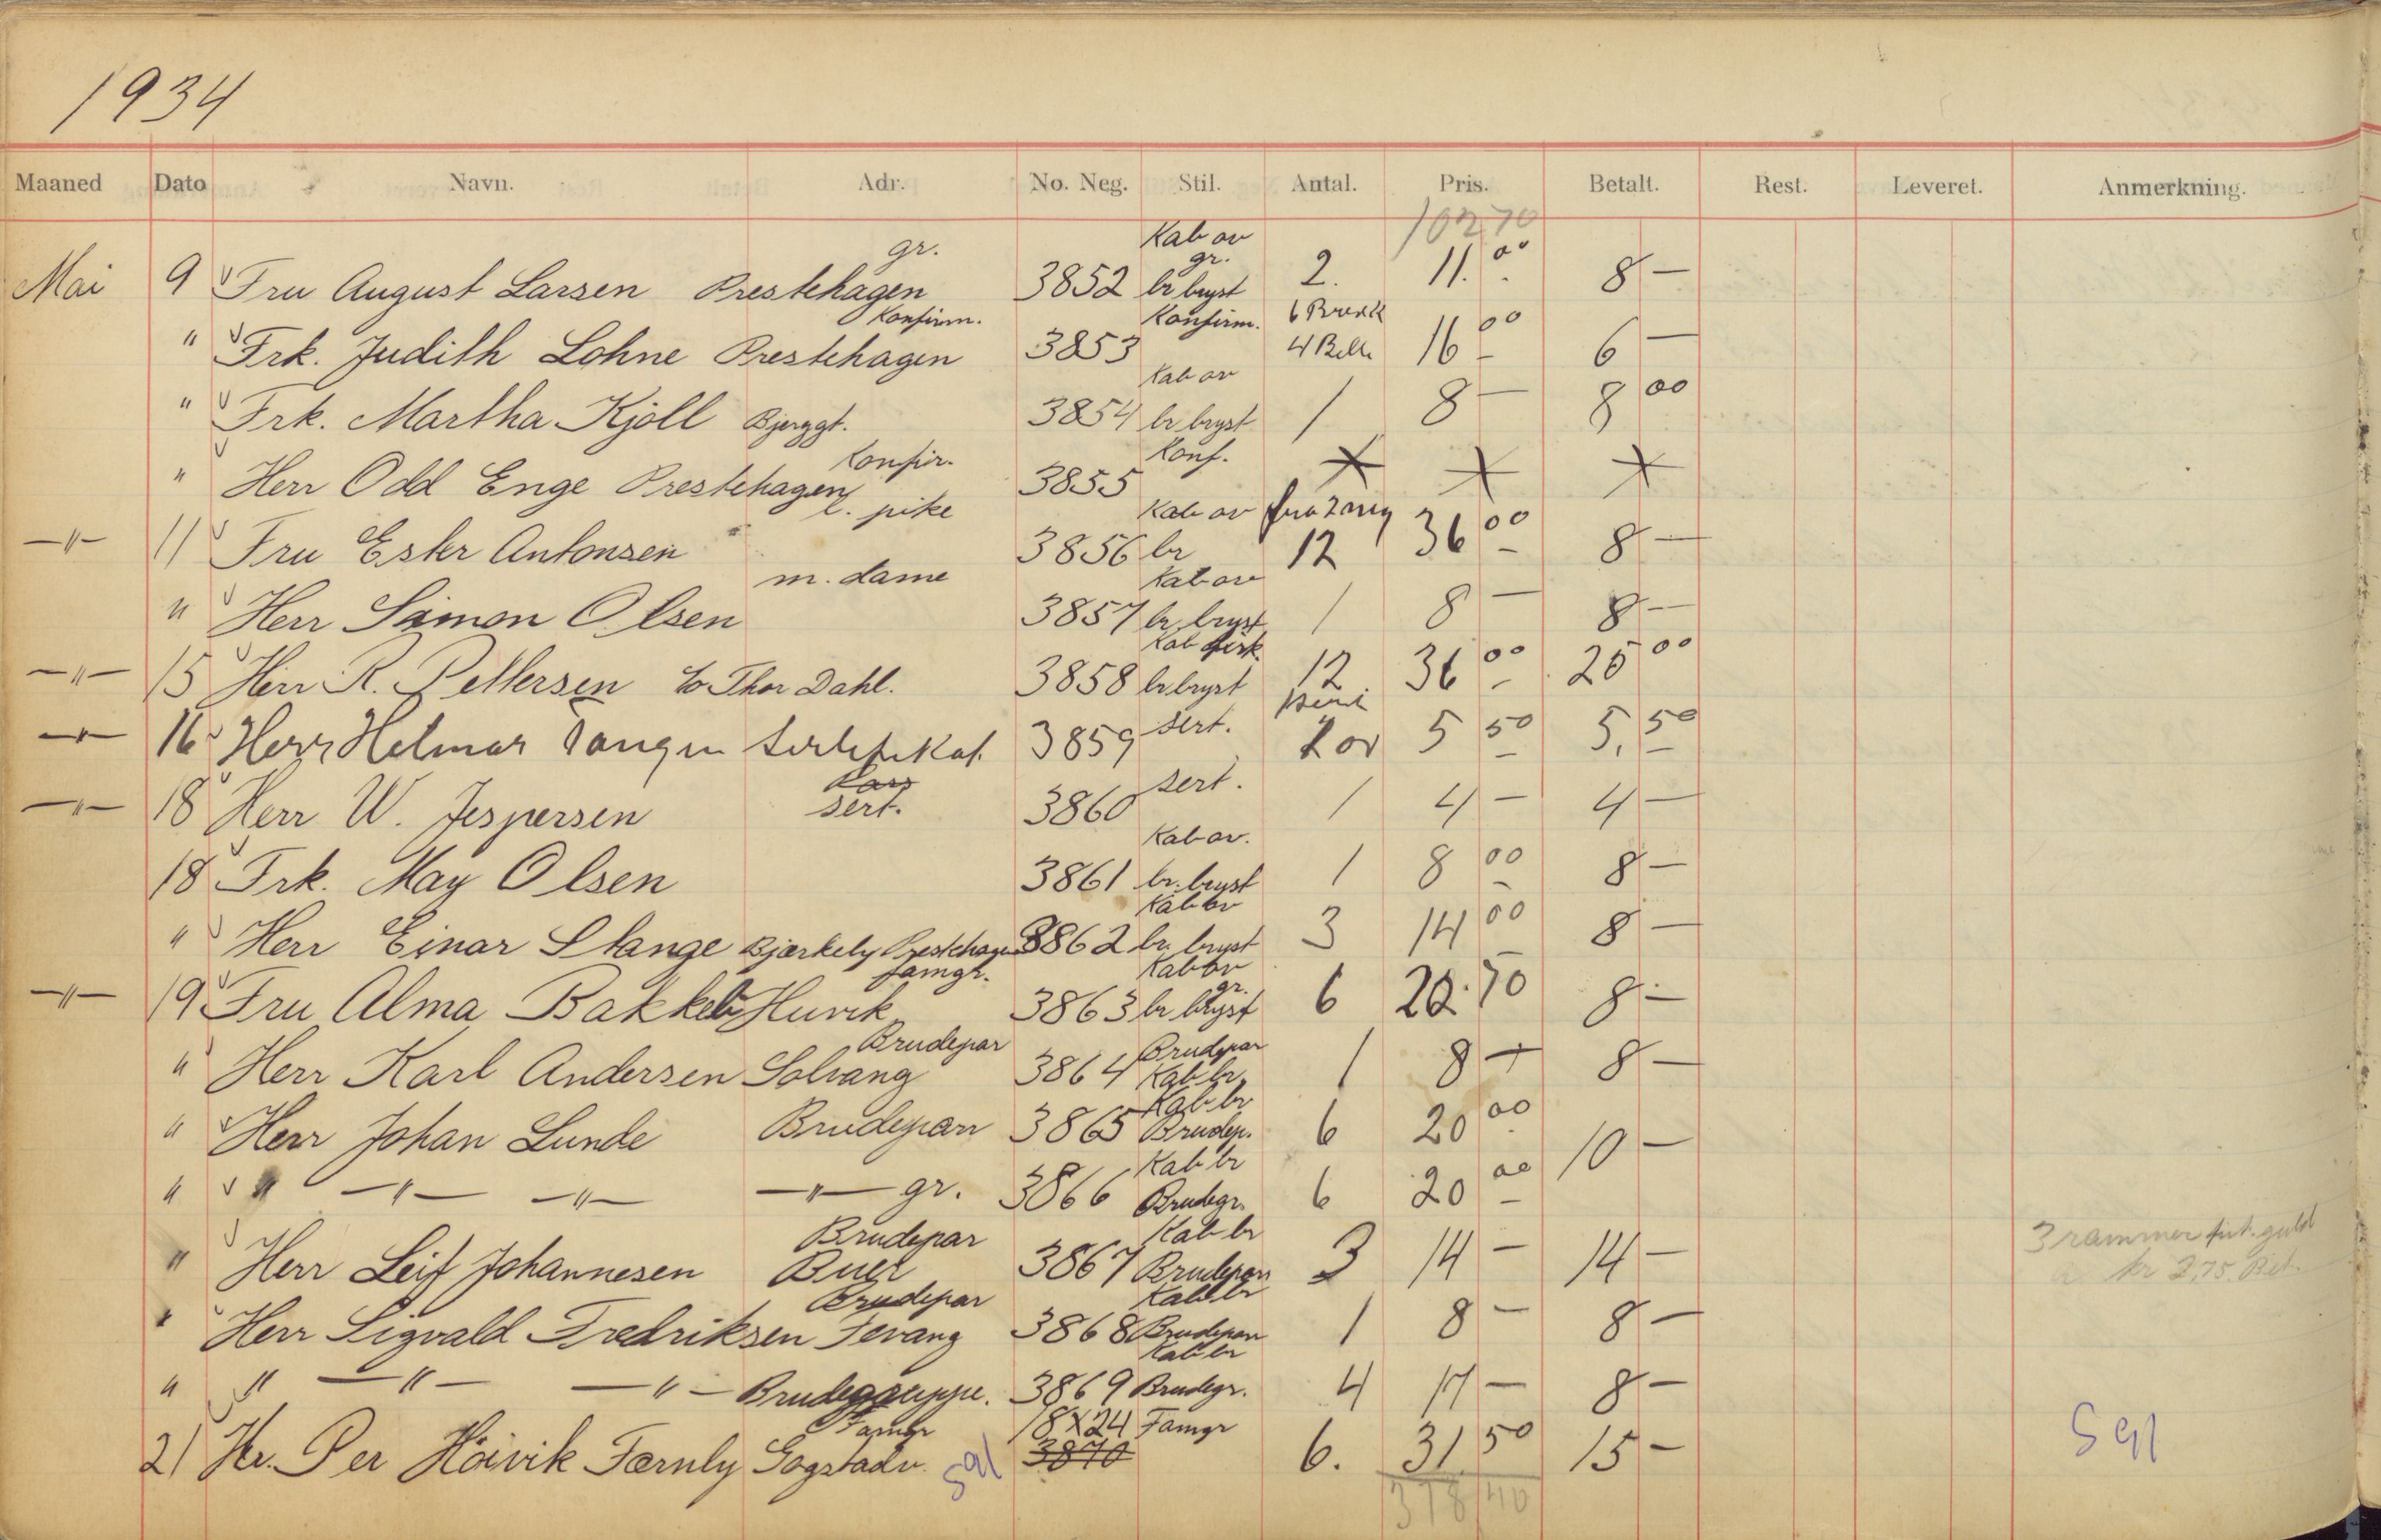 1934
Maaned Dato Navn. Adr. No. Neg. Stil. Antal. Pris. Betalt. Rest. Leveret. Anmerkning.
10270
gr. Kab av gr.
Mai 9 Fru August Larsen Prestehagen 3852 br bryst 2. 11.00 8 —
Konfirm. Konfirm. 6 Brevk
" Frk. Judith Lohne Prestehagen 3853 4 Bille 16 00 6 —
Kab av
" Frk. Martha Kjöll Bjerggt. 3854 br bryst 1 8 — 8 00
Konfir. Konf.
" Herr Odd Enge Prestehagen 3855 X X X
l. pike Kab av
—"— 11 Fru Ester Antonsen 3856 br 12 36 00 8 —
m. dame Kab av
" Herr Simon Olsen 3857 br. bryst 1 8 — 8 —
Kab
—"— 15 Herr R. Pettersen Thor Dahl. 3858 br bryst 12 36 00 25 00
—"— 16 Herr Helmar Tangen sertifikat. 3859 sert. 5 50 5,50
—"— 18 Herr W. Jespersen sert. 3860 sert. 1 4 — 4 —
Kab av.
18 Frk. May Olsen 3861 br. bryst 1 8 00 8 —
Kab av
" Herr Einar Stange Bjerkely Prestehagen 3862 br. bryst 3 14 00 8 —
famgr. Kab av gr.
—"— 19 Fru Alma Bakkeli Huvik 3863 br bryst 6 20.70 8 —
Brudepar Brudepar
" Herr Karl Andersen Solvang 3864 Kab br. 1 8 — 8 —
Kab br
" Herr Johan Lunde Brudepar 3865 Brudep. 6 20 00 10 —
Kab br
" " —"— —"— —"— gr. 3866 Brudegr. 6 20 00
Brudepar Kab br
" Herr Leif Johannesen Buer 3867 Brudepar 3 14 — 14 — 3 rammer ant. guld
Brudepar Kab br kr 2,75. Bet.
" Herr Sigvald Fredriksen Jevang 3868 Brudepar 1 8 — 8 —
Kab br
" " —"— —"— Brudegruppe. 3869 Brudegr. 4 17 — 8 —
Famgr 18X24 Famgr
21 Hr. Per Höivik Færnly Gogstadv. 3870 6. 31 50 15 —
591 591
378 40